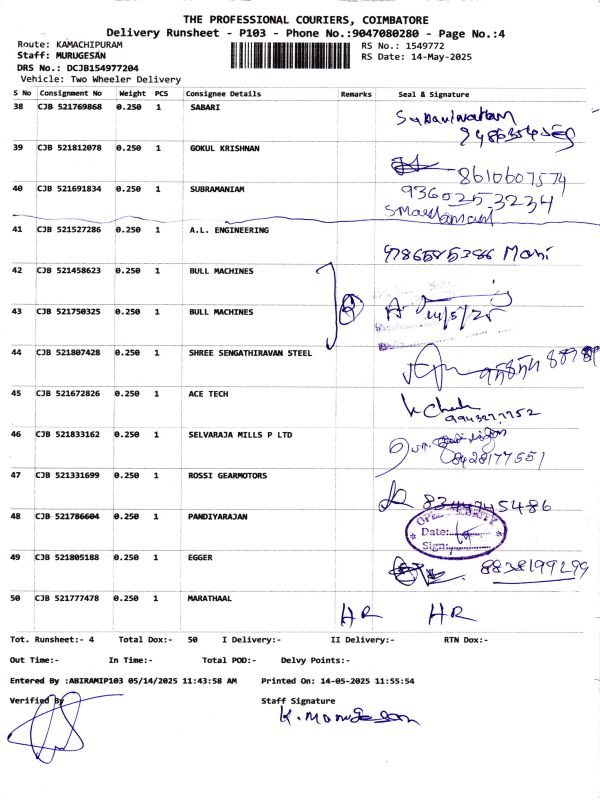 THE PROFESSIONAL COURIERS, COIMBATORE
Delivery Runsheet - P103 - Phone No.:9047080280 - Page No.:4
Route: KAMACHIPURAM RS No.: 1549772
Staff: MURUGESAN RS Date: 14-May-2025
DRS No.: DCJB154977204
Vehicle: Two Wheeler Delivery
S No Consignment No Weight PCS Consignee Details Remarks Seal & Signature
38 CJB 521769868 0.250 1 SABARI
39 CJB 521812078 0.250 1 GOKUL KRISHNAN
8610607574
40 CJB 521691834 0.250 1 SUBRAMANIAM
936025 3234
41 CJB 521527286 0.250 1 A.L. ENGINEERING
Mani
42 CJB 521458623 0.250 1 BULL MACHINES
43 CJB 521750325 0.250 1 BULL MACHINES
14/5/25
44 CJB 521807428 0.250 1 SHREE SENGATHIRAVAN STEEL
45 CJB 521672826 0.250 1 ACE TECH
46 CJB 521833162 0.250 1 SELVARAJA MILLS P LTD
8428177551
47 CJB 521331699 0.250 1 ROSSI GEARMOTORS
48 CJB 521786604 0.250 1 PANDIYARAJAN
Date:
Sign:
49 CJB 521805188 0.250 1 EGGER
8838199299
50 CJB 521777478 0.250 1 MARATHAAL
HR HR
Tot. Runsheet:- 4 Total Dox:- 50 I Delivery:- II Delivery:- RTN Dox:-
Out Time:- In Time:- Total POD:- Delvy Points:-
Entered By :ABIRAMIP103 05/14/2025 11:43:58 AM Printed On: 14-05-2025 11:55:54
Verified By Staff Signature